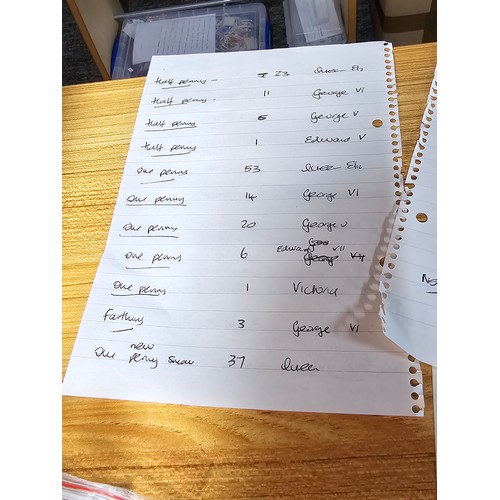 Half penny - 23 Queen Eliz
Half penny - 11 George VI
Half penny 5 George V
Half penny 1 Edward V
One penny 53 Queen Eliz
One penny 14 George VI
One penny 20 George V
One penny 6 Edward VII
One penny 1 Victoria
Farthing 3 George VI
One new penny 37 Queen